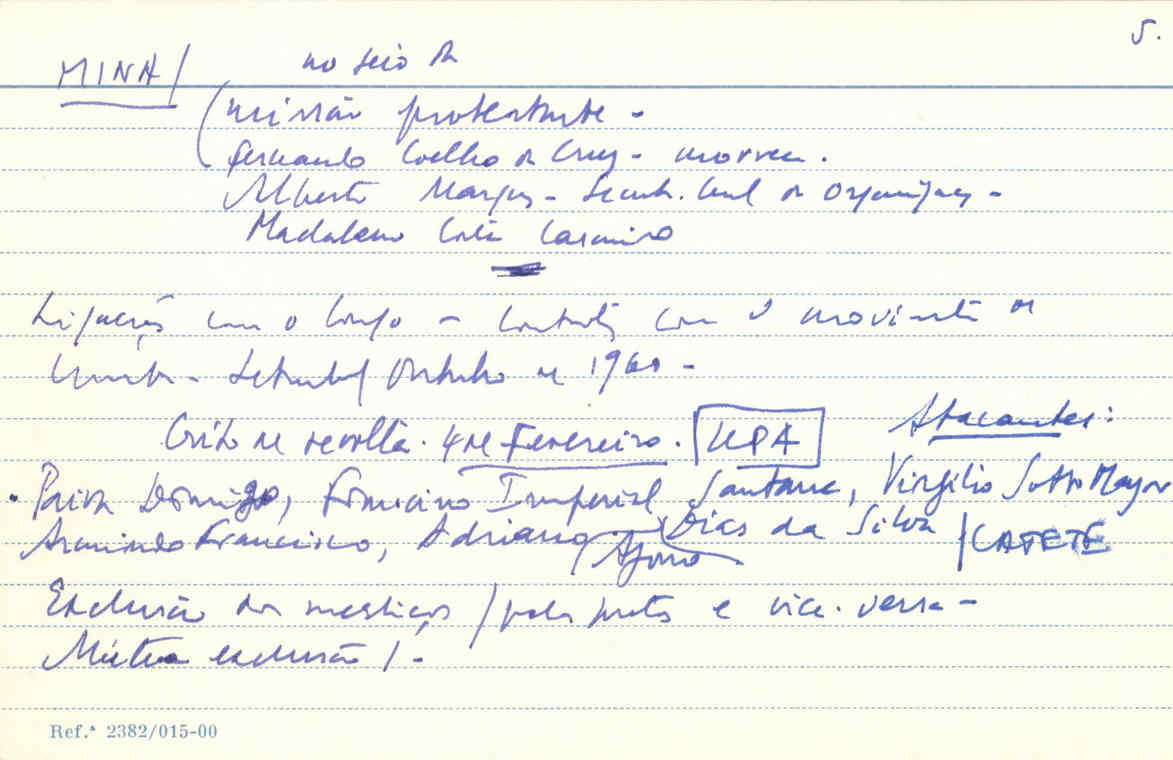 5.
MINA/ no seio da
(missão protestante -
Fernando Coelho da Cruz - morreu.
Alberto Marques - Secret. Geral da Organização -
Madalena Casimiro
Ligações com o Congo - Contactos com o movimento de
Setembro/Outubro de 1960 -
Grito de revolta. 4 de Fevereiro. UPA Atacantes:
• Paiva Domingo, Francisco Imperial Santana, Virgilio Sotto Mayor
Armindo Francisco, Adriano (Dias da Silva /CATETE
Afonso
Exclusão dos mestiços / pelos pretos e vice-versa -
Mútua exclusão / -
Ref.ª 2382/015-00